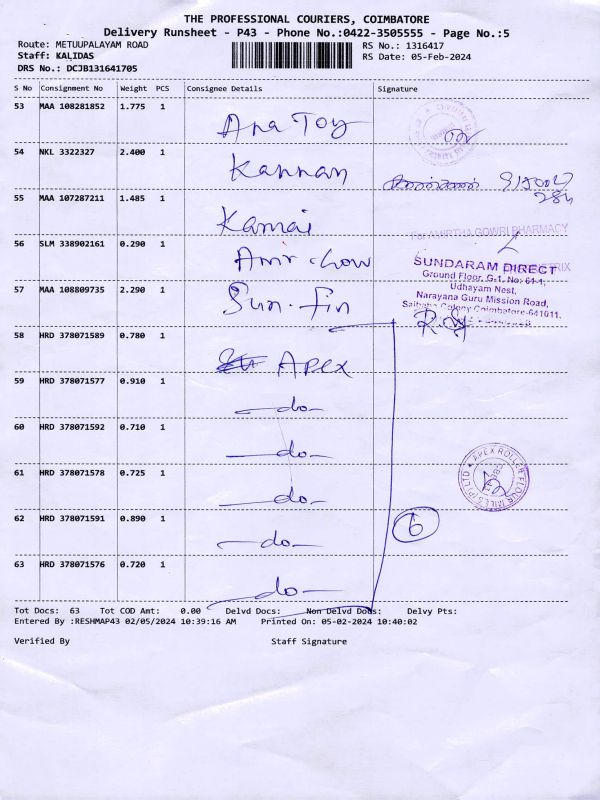 THE PROFESSIONAL COURIERS, COIMBATORE
Delivery Runsheet - P43 - Phone No.:0422-3505555 - Page No.:5
Route: METUUPALAYAM ROAD
RS No.: 1316417
Staff: KALIDAS
RS Date: 05-Feb-2024
DRS No.: DCJB131641705
S No Consignment No Weight PCS Consignee Details Signature
53 MAA 108281852 1.775 1
Ana Toy
54 NKL 3322327 2.400 1
Kannan
55 MAA 107287211 1.485 1
Kamai
For AMIRTHA GOWRI PHARMACY
56 SLM 338902161 0.290 1
Amir chow
SUNDARAM DIRECT
Ground Floor, G-1, No: 61-1,
Udhayam Nest,
Narayana Guru Mission Road,
Saibaba Colony Coimbatore-641011.
57 MAA 108809735 2.290 1
Sun. Fin
58 HRD 378071589 0.780 1
Apex
59 HRD 378071577 0.910 1
-do-
60 HRD 378071592 0.710 1
-do-
61 HRD 378071578 0.725 1
-do-
APEX ROLLER FLOUR MILLS (P) LTD
62 HRD 378071591 0.890 1
-do-
6
63 HRD 378071576 0.720 1
-do-
Tot Docs: 63 Tot COD Amt: 0.00 Delvd Docs: Non Delvd Docs: Delvy Pts:
Entered By :RESHMAP43 02/05/2024 10:39:16 AM Printed On: 05-02-2024 10:40:02
Verified By Staff Signature